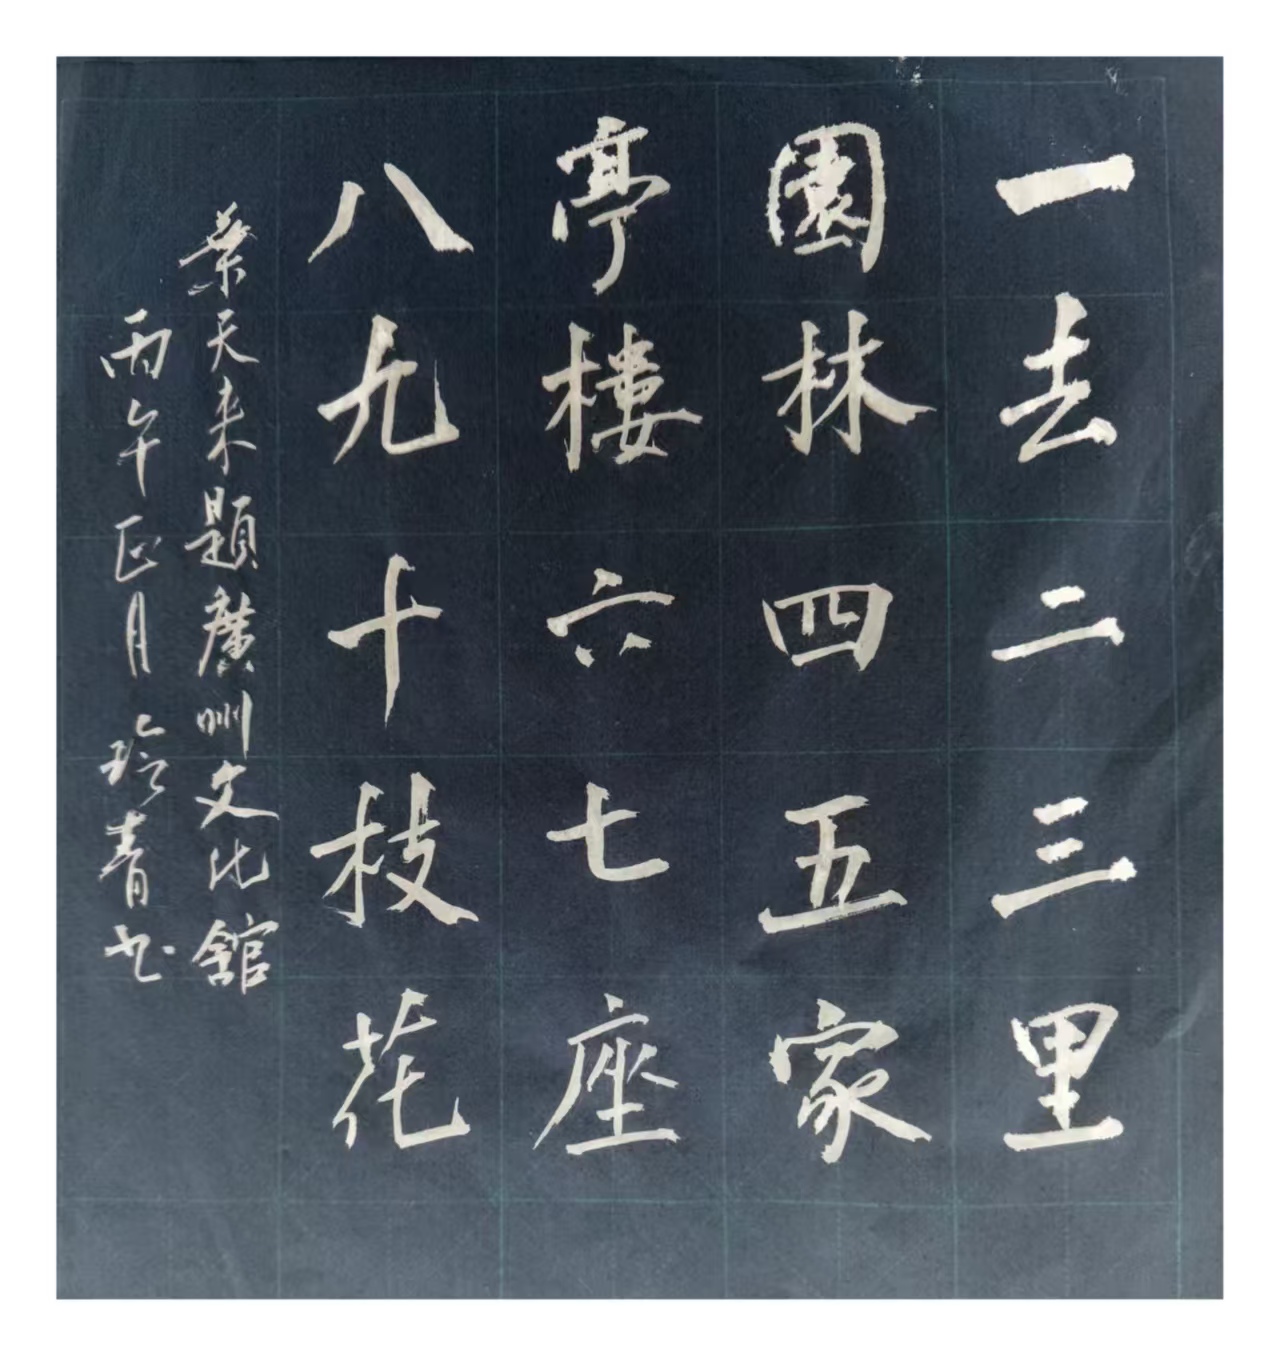 一去二三里
園林四五家
亭樓六七座
八九十枝花
葉天来題廣州文化館
丙午正月 玲青书